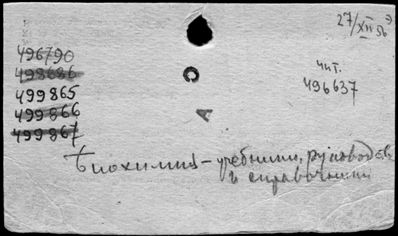 27/XII 56
496790
498686
499865
499866
499867
чит.
496637
Биохимия – учебники, руковод-ва
и справочники